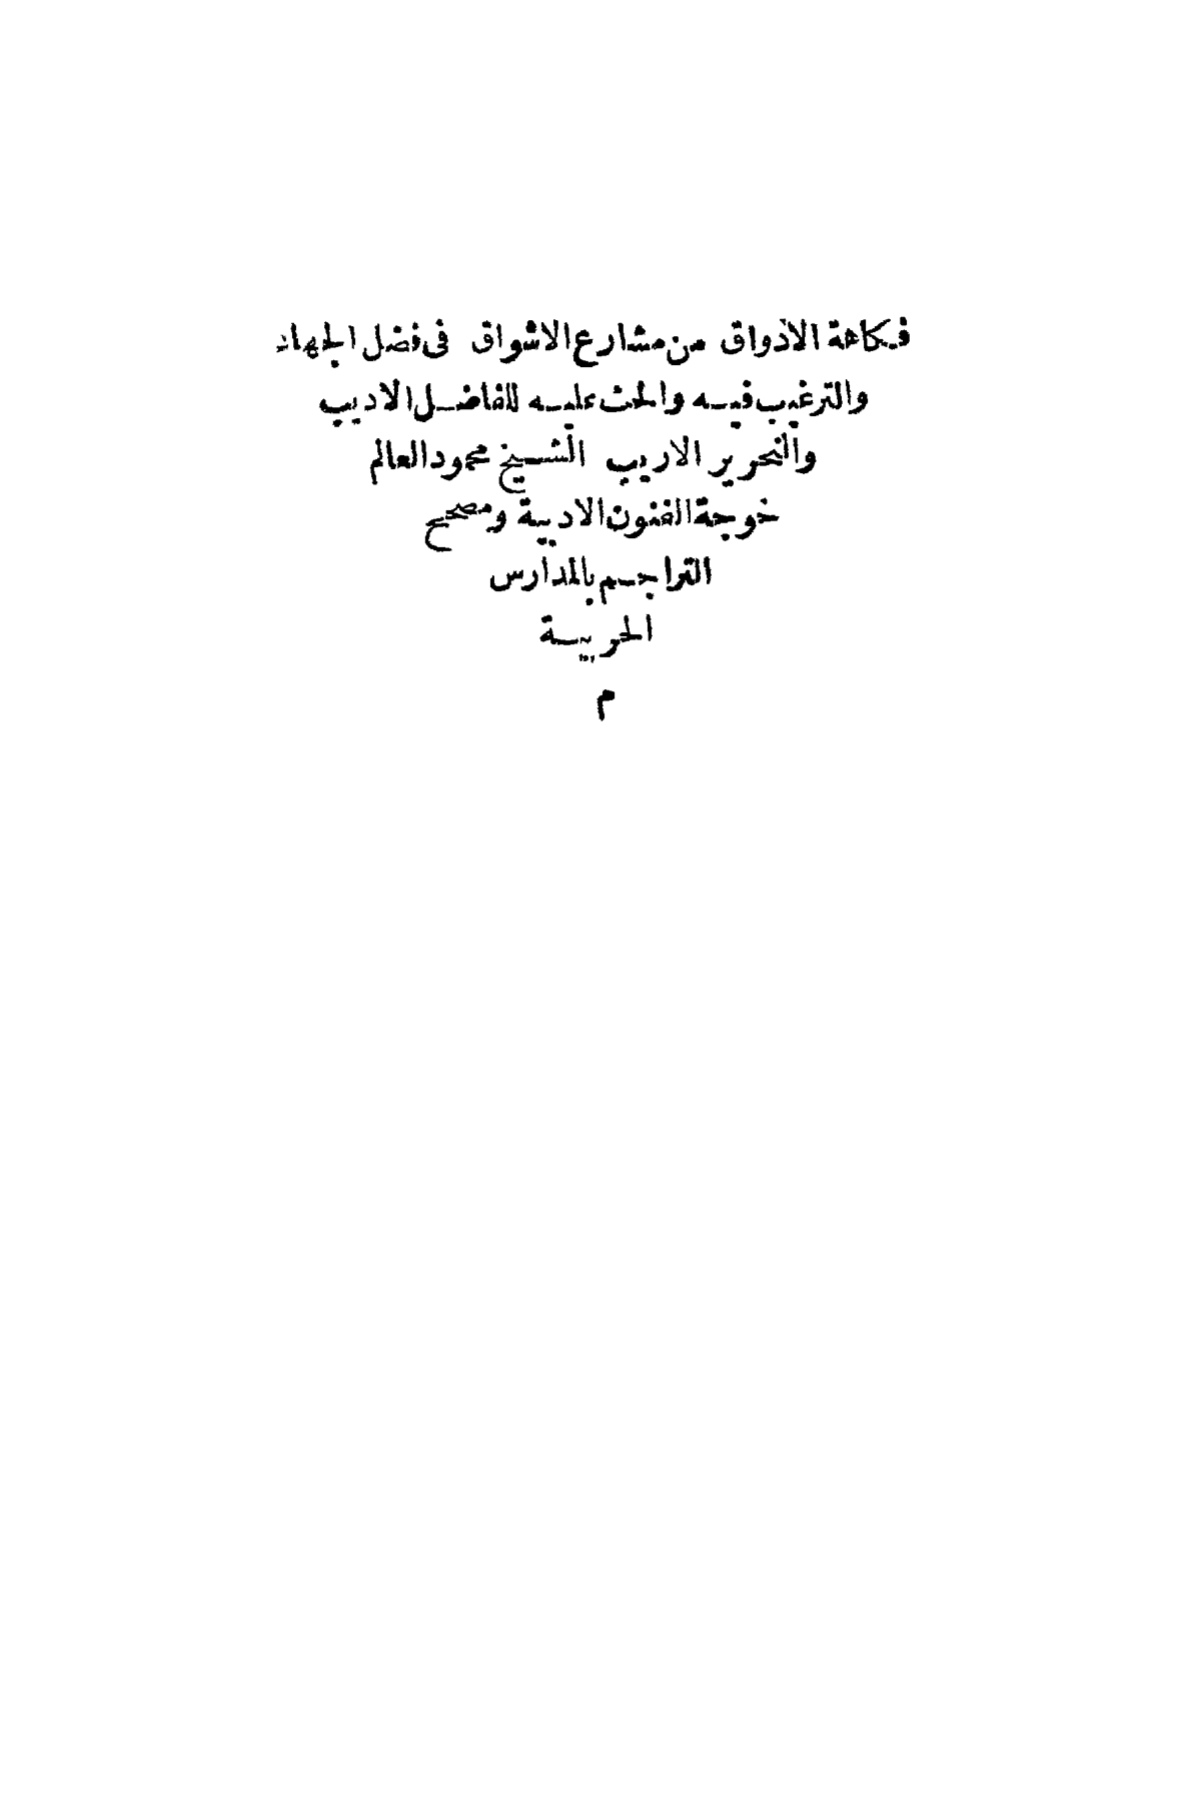 فكاهة الاذواق من مشارع الاشواق فى فضل الجهاد
والترغيب فيه والحث عليه للفاضل الاديب
والنحرير الاريب الشيخ محمود العالم
خوجة الفنون الادبية ومصحح
التراجم بالمدارس
الحربية
م